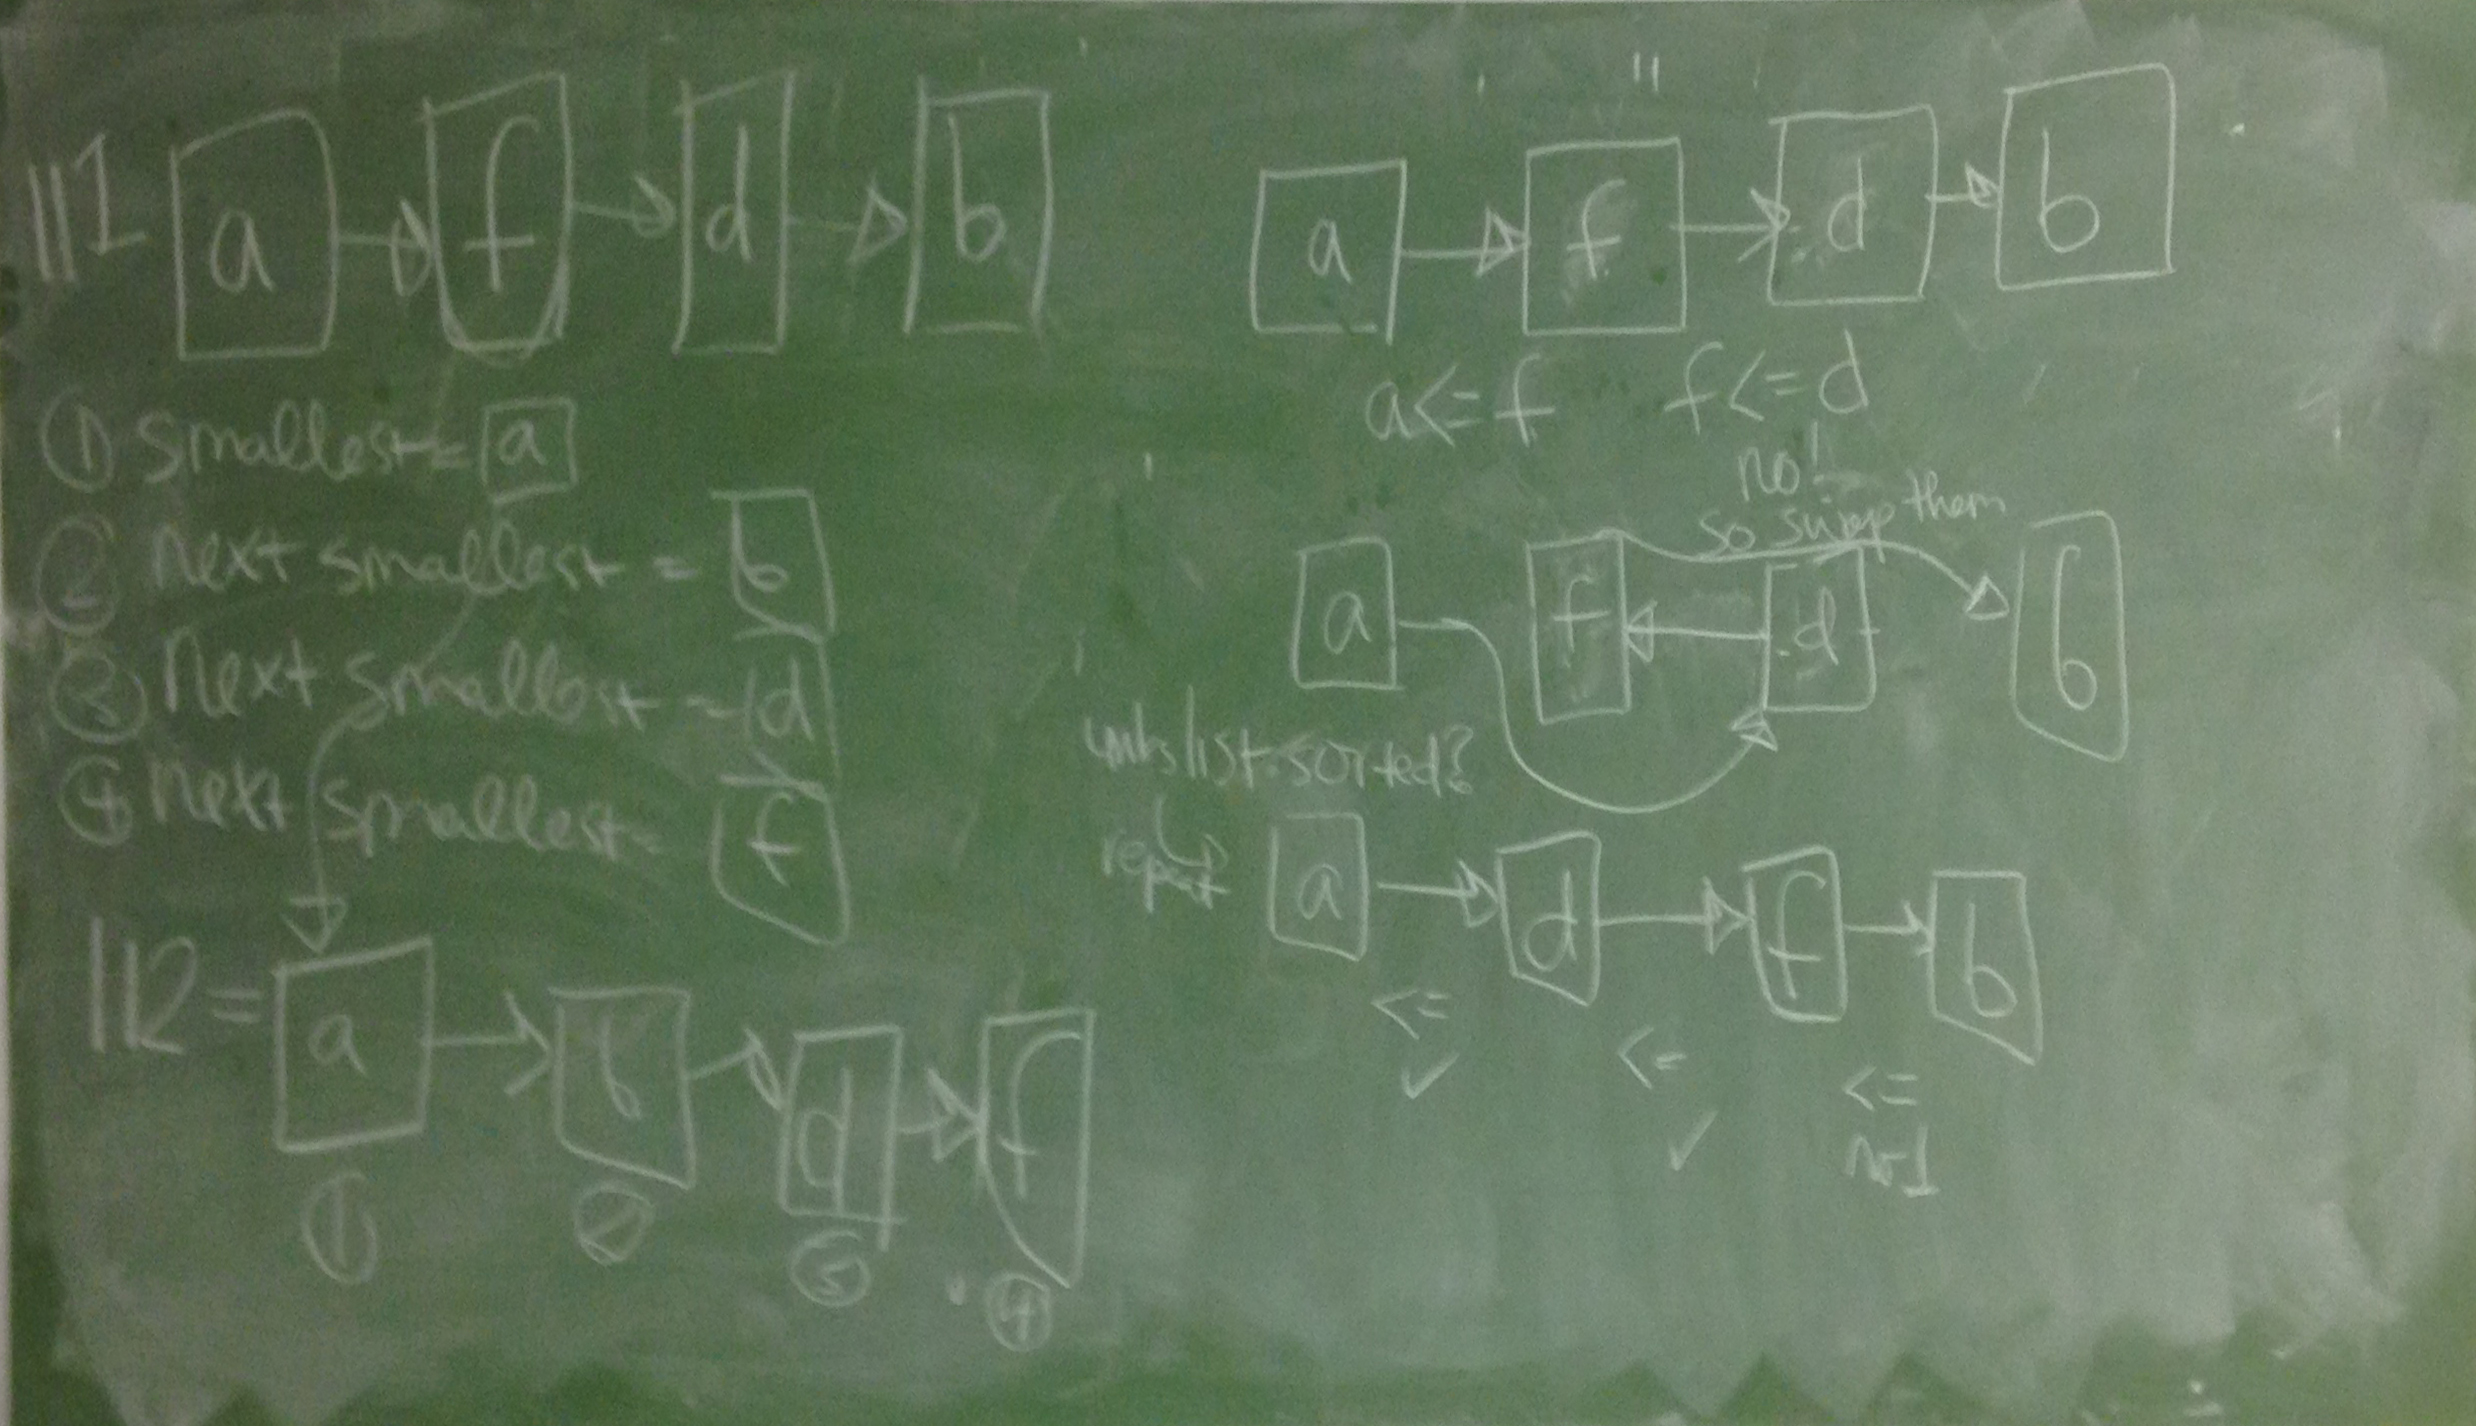 ll1 a f d b
① smallest = a
② next smallest = b
③ next smallest = d
④ next smallest = f
ll2 = a b d f
① ② ③ ④
a f d b
a<=f f<=d
no!
so swap them
a f d b
list sorted?
repeat
a d f b
<= <= <=
✓ ✓ no!